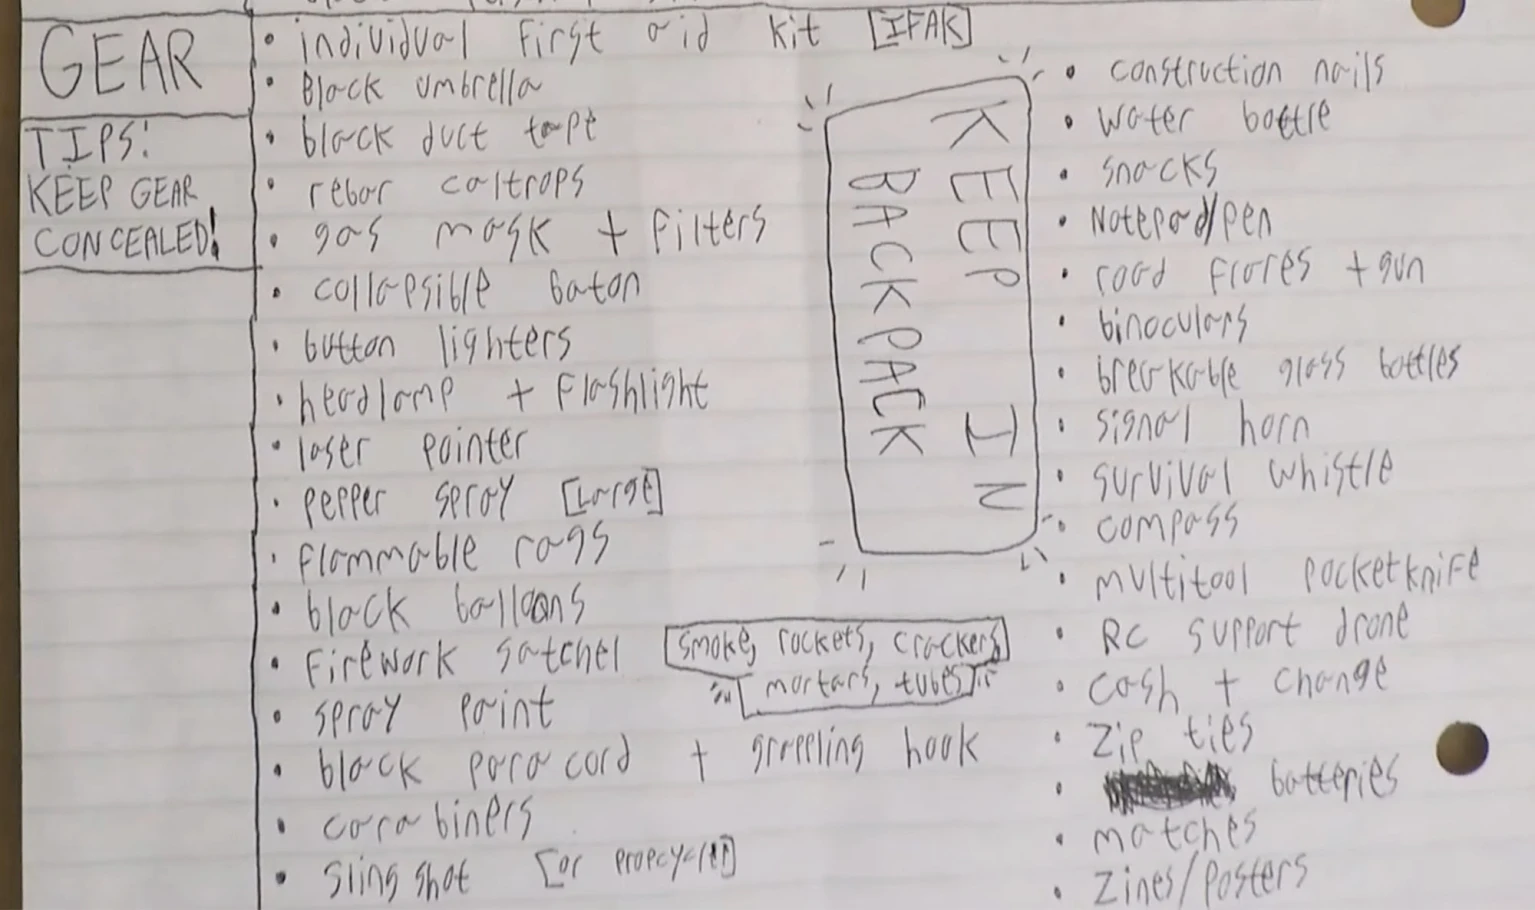 GEAR
TIPS!
KEEP GEAR
CONCEALED!
• individual first aid kit [IFAK]
• Black umbrella
• black duct tape
• rebar caltrops
• gas mask + filters
• collapsible baton
• button lighters
• headlamp + flashlight
• laser pointer
• pepper spray [Large]
• flammable rags
• black balloons
• Firework satchel [smoke, rockets, crackers]
[mortars, tubes]
• spray paint
• black paracord + grappling hook
• carabiners
• Sling shot [or
KEEP IN
BACKPACK
• construction nails
• water bottle
• snacks
• Notepad/pen
• road flares + gun
• binoculars
• breakable glass bottles
• signal horn
• survival whistle
• compass
• multitool pocketknife
• RC support drone
• cash + change
• Zip ties
• batteries
• matches
• Zines/Posters